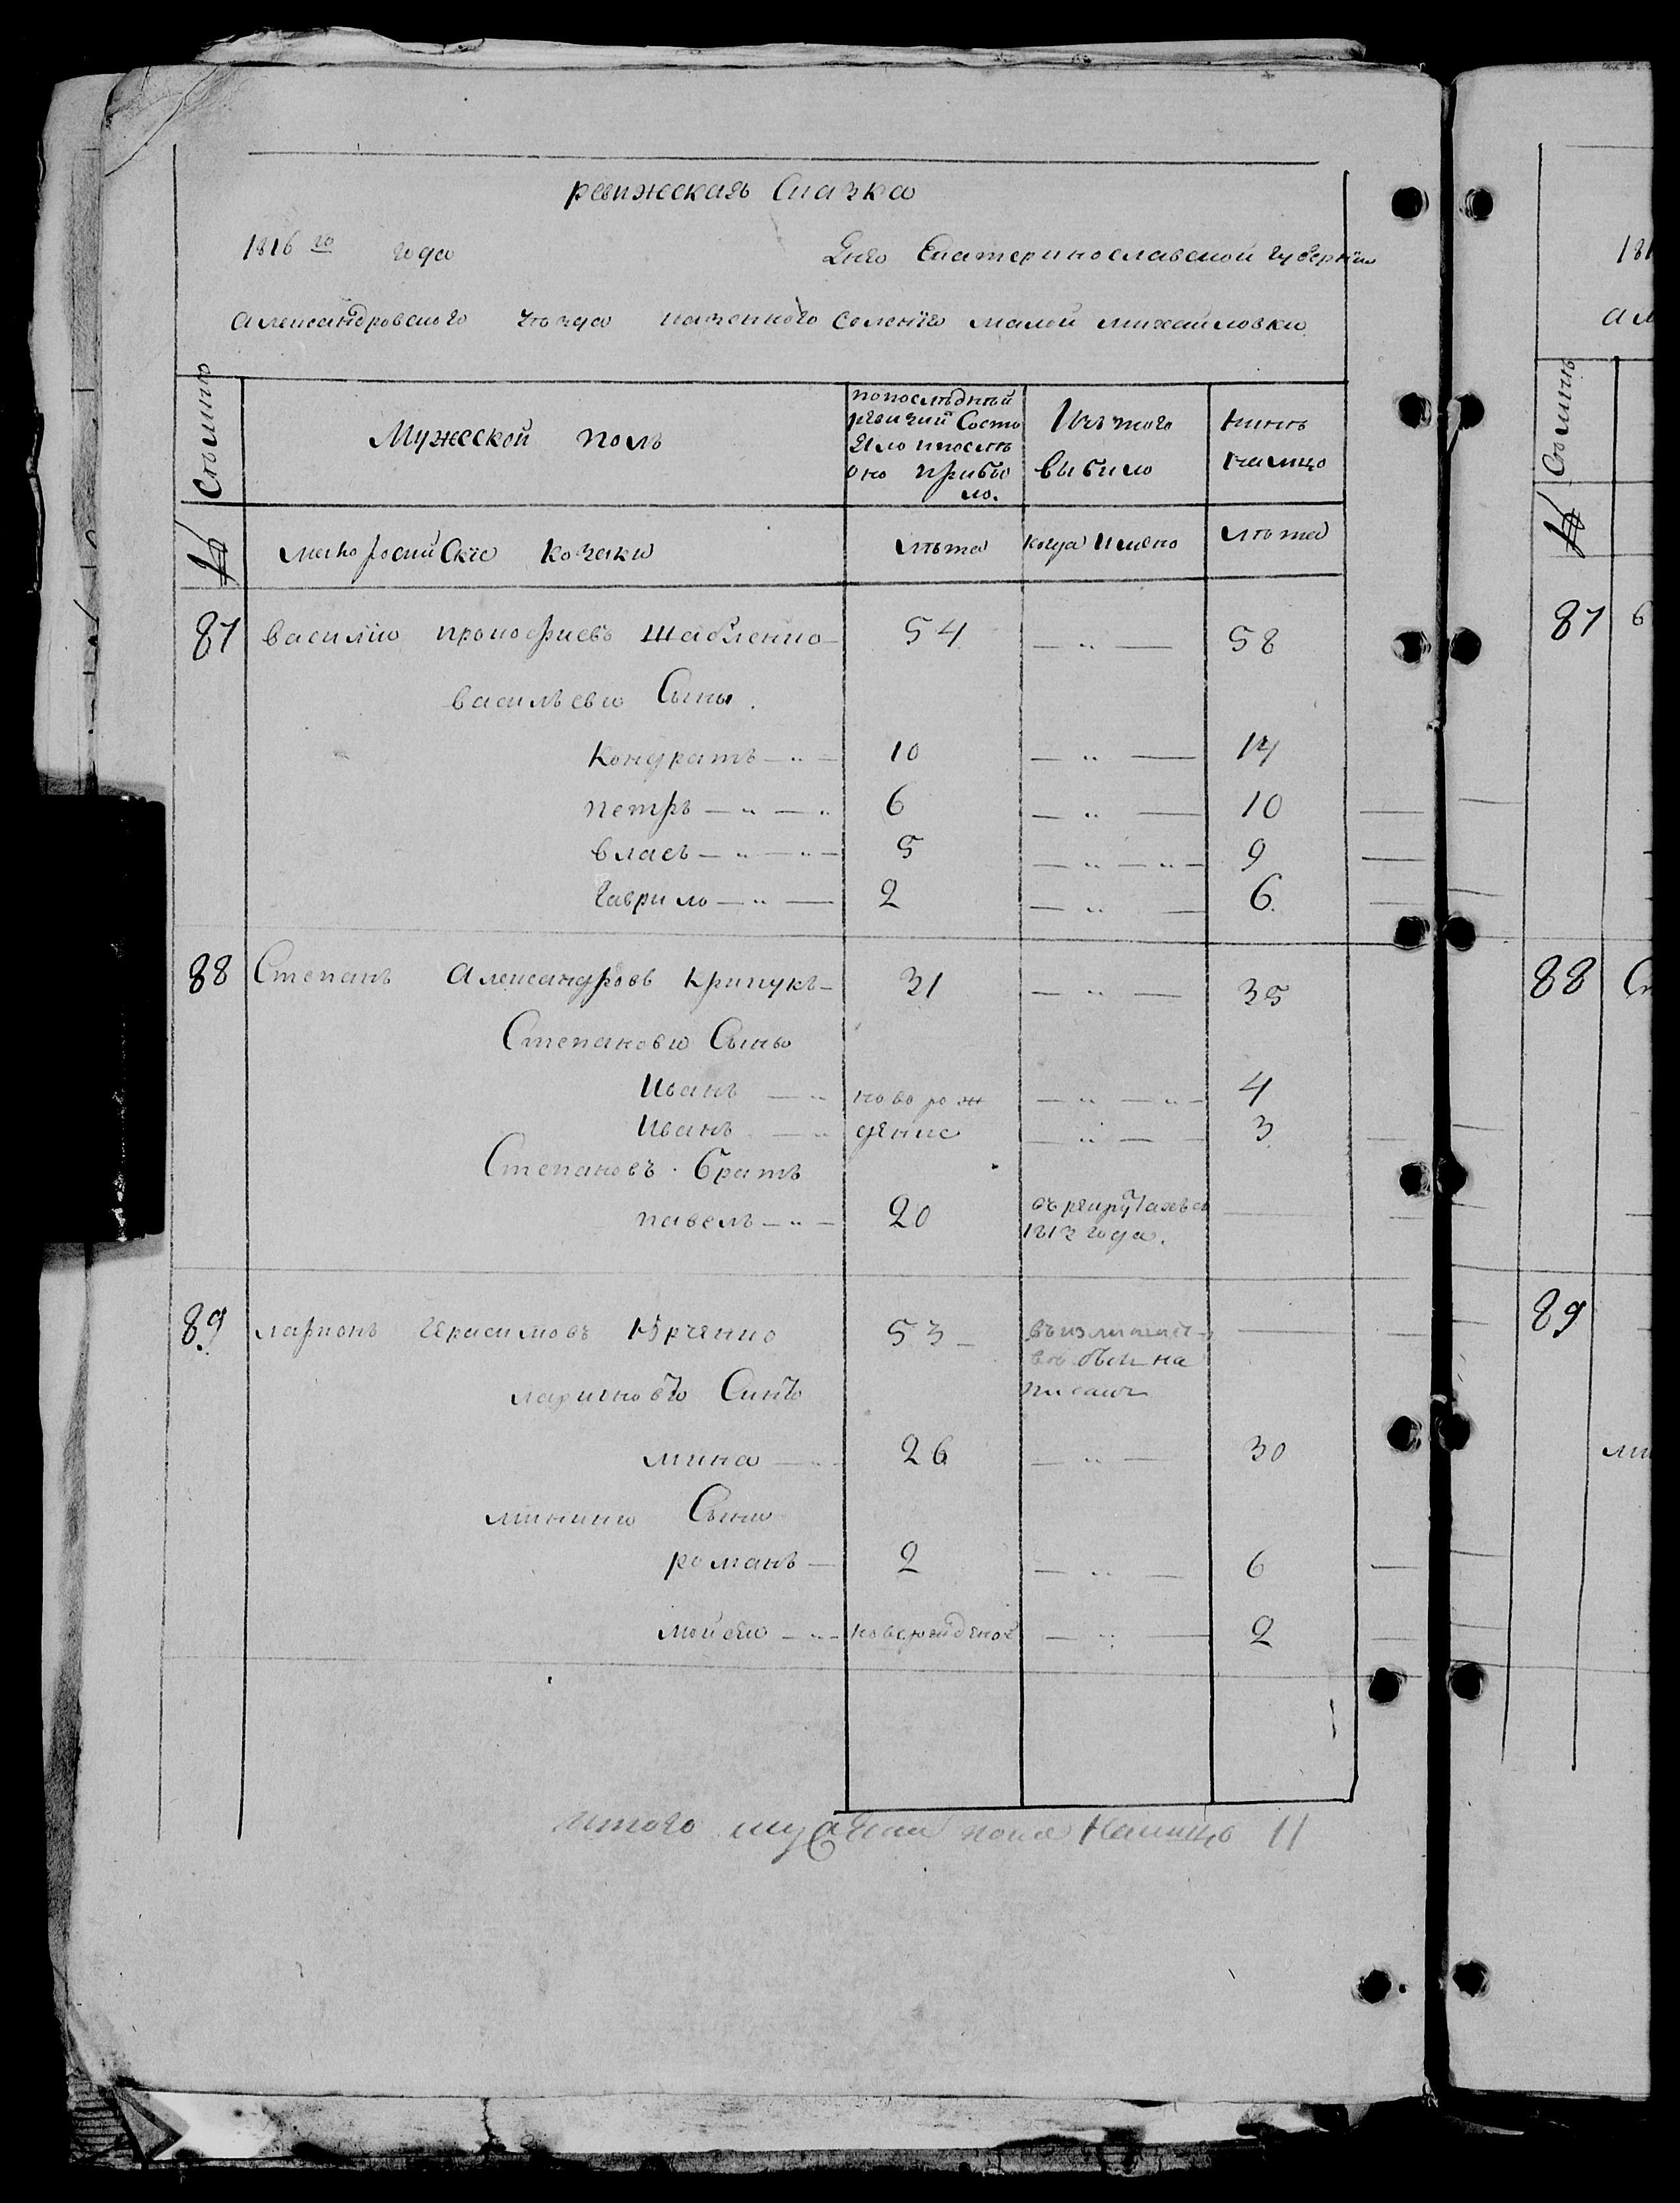 ревижская Сказка
1816 го года Дня Екатеринославской губернїи
александровского уѣзда казенного Селенїя малой михайловки
Сѣмьи
Мужеской полъ
попослѣдней
ревизии Состо
яло ипослѣ
оно прибы
ло.
Изъ того
выбыло
нынѣ
налицо
№
малоросийские козаки
лѣта
когда имено
лѣта
87 василий прокофиевъ шабленко 54 — „ — 58
васильевы Сыны.
кондратъ — „ — 10 — „ — 14
петръ — „ — „ 6 — „ — 10
власъ — „ — „ — 5 — „ — „ — 9
гаврило — „ — 2 — „ — 6
88 Степанъ александровъ крипукъ 31 — „ — 35
Степановы Сыны
иванъ — „ новорож — „ — „ — 4
иванъ — „ дение — „ — 3
Степановъ братъ
павелъ — „ — 20 въ рекрутахъ съ
1812 года.
89 ларионъ герасимовъ Юрченко 53 —
написанъ
лариновъ Синъ
мина — „ 26 — „ — 30
минины Сыны
романъ — 2 — „ — 6
мойсей — „ — новорожденой — „ — 2
итого мужеска пола Налицо 11
181
ал
Сѣмьи
№
87
88 Ст
89
ми